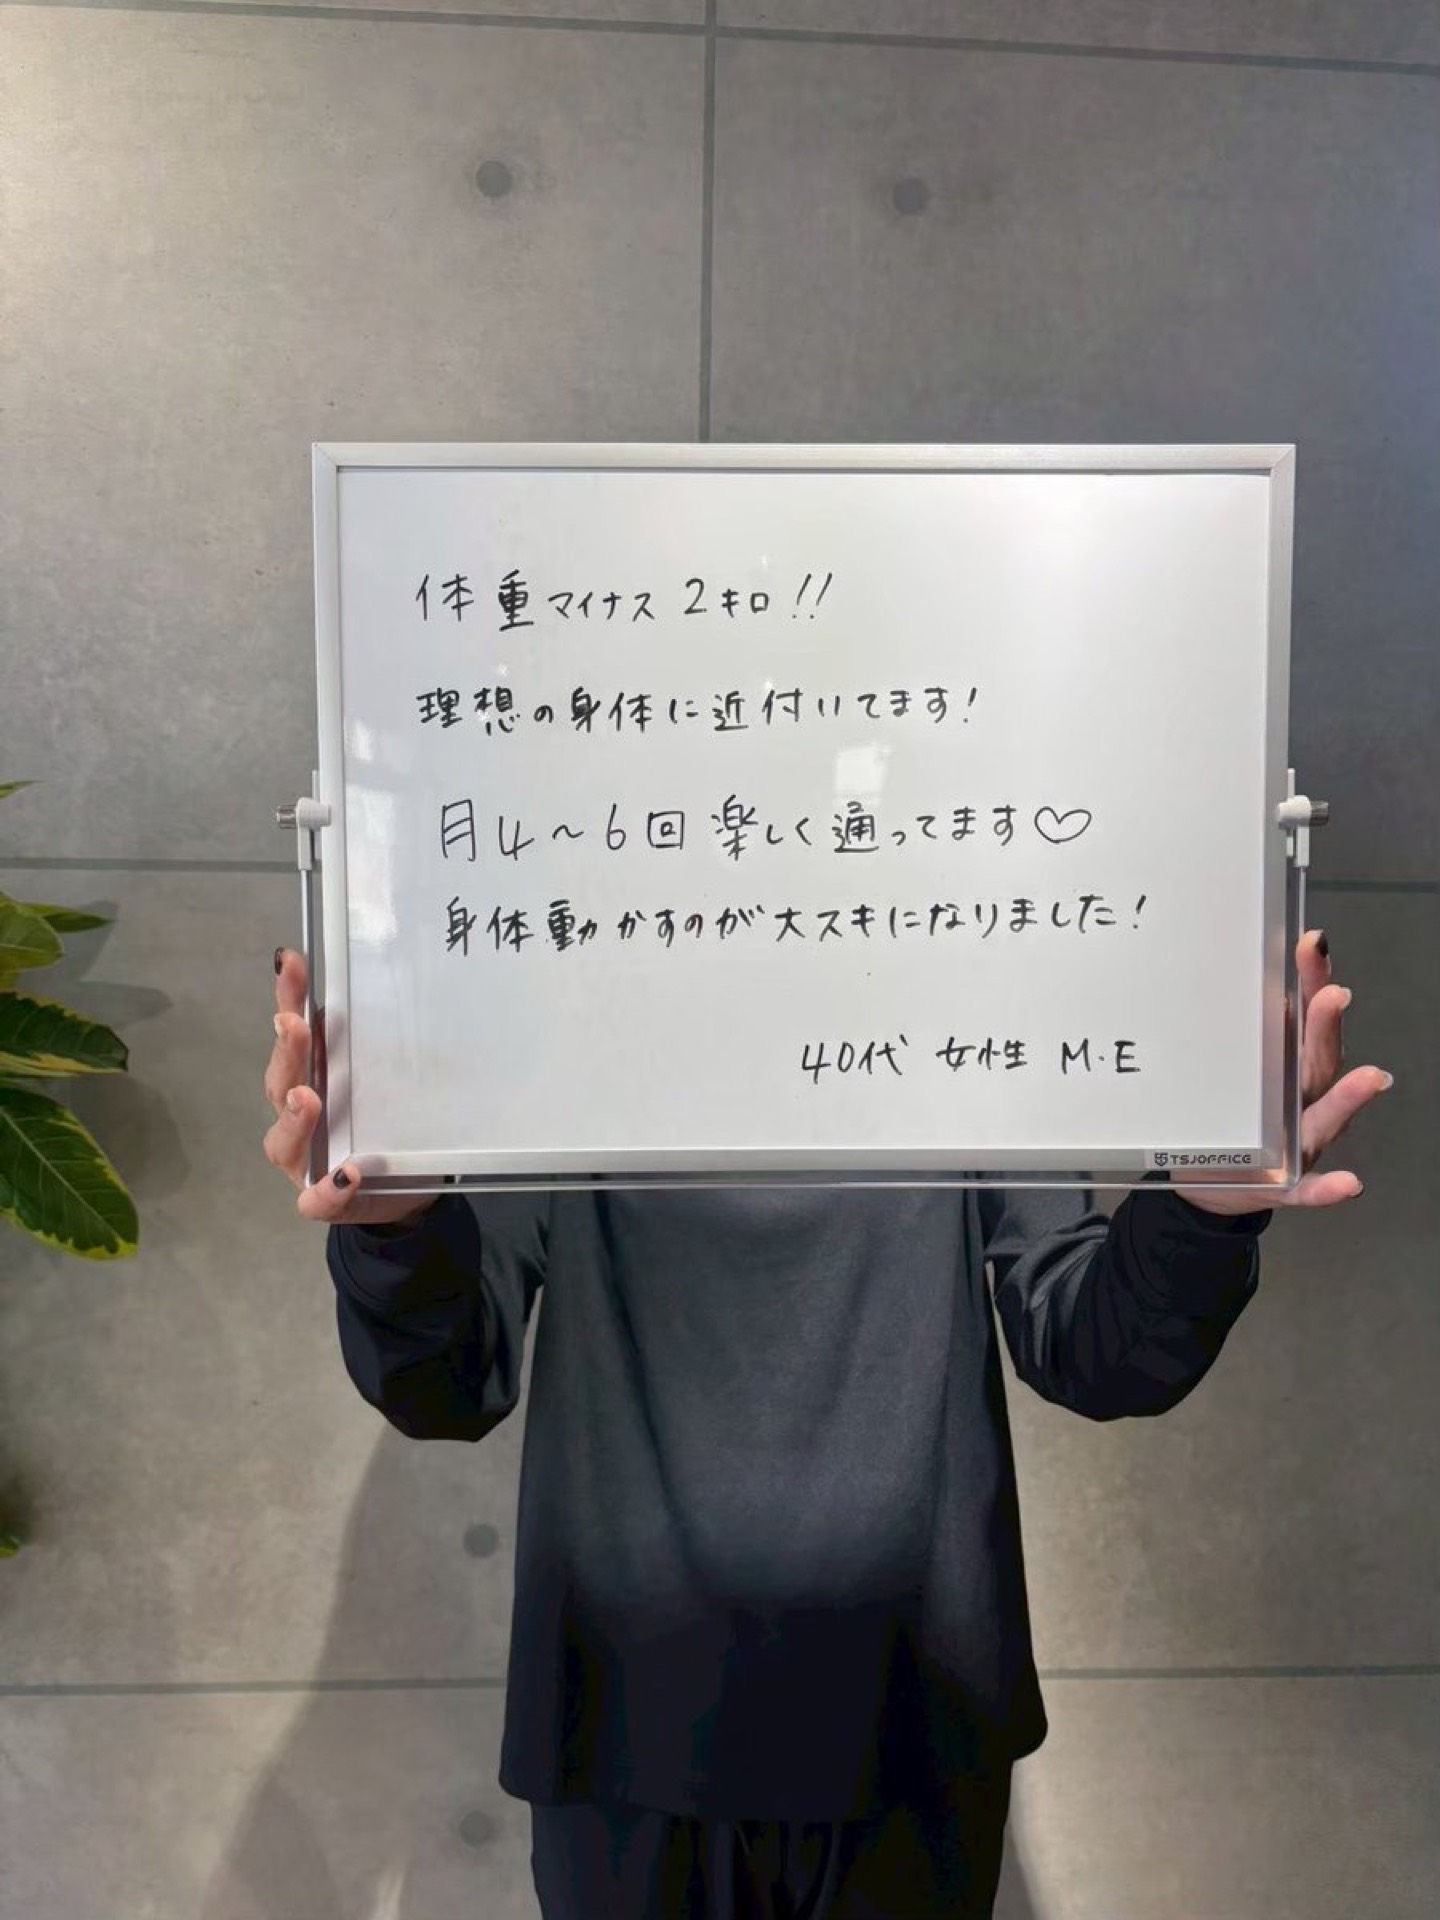 体重マイナス2キロ!!
理想の身体に近付いてます!
月4～6回楽しく通ってます♡
身体動かすのが大スキになりました!
40代 女性 M.E
TSJOFFICE